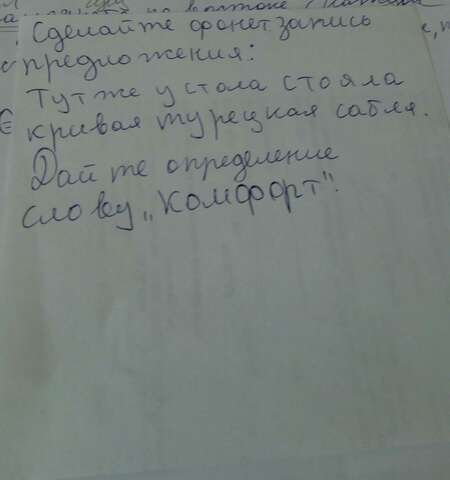 Сделайте фонет запись
предложения:
Тут же у стола стояла
кривая турецкая сабля.
Дайте определение
слову „Комфорт".